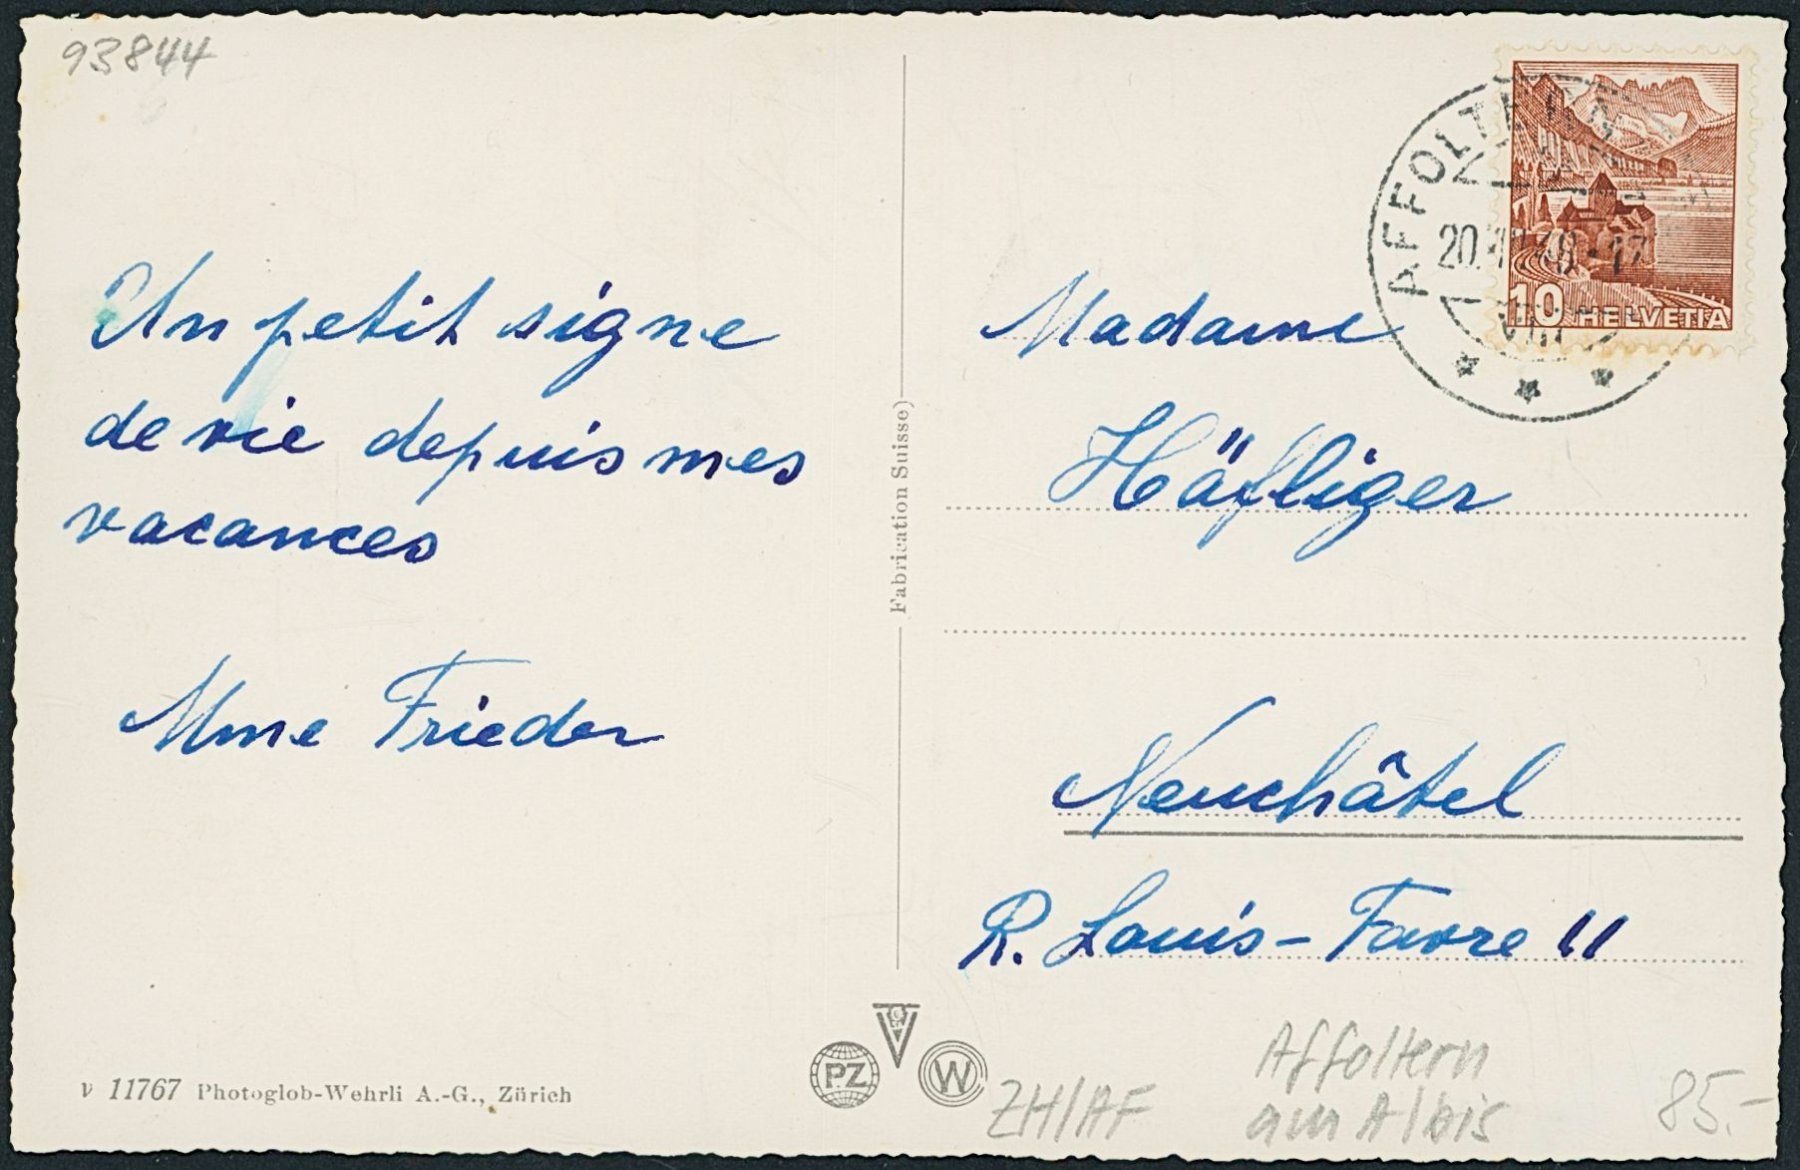 93844
Un petit signe
de vie depuis mes
vacances
Mme Frieder
v 11767 Photoglob-Wehrli A.-G., Zürich
Fabrication Suisse)
PZ
W
AFFOLTERN
20.
17
VIII
10 HELVETIA
Madame
Häfliger
Neuchâtel
R. Louis-Favre 11
ZH/AF
Affoltern
am Albis
85.-